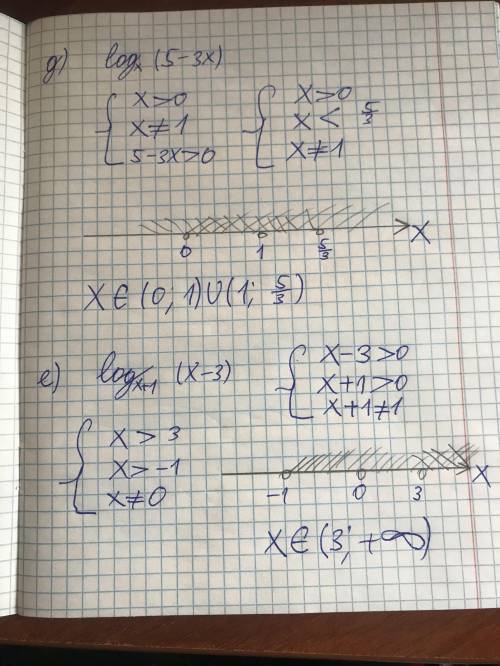 д) logₓ (5-3x)
{ x>0
x≠1
5-3x>0
{ x>0
x< 5/3
x≠1
0 1 5/3 x
x∈(0; 1)∪(1; 5/3)
е) logₓ₊₁ (x-3)
{ x-3>0
x+1>0
x+1≠1
{ x>3
x>-1
x≠0
-1 0 3 x
x∈(3; +∞)